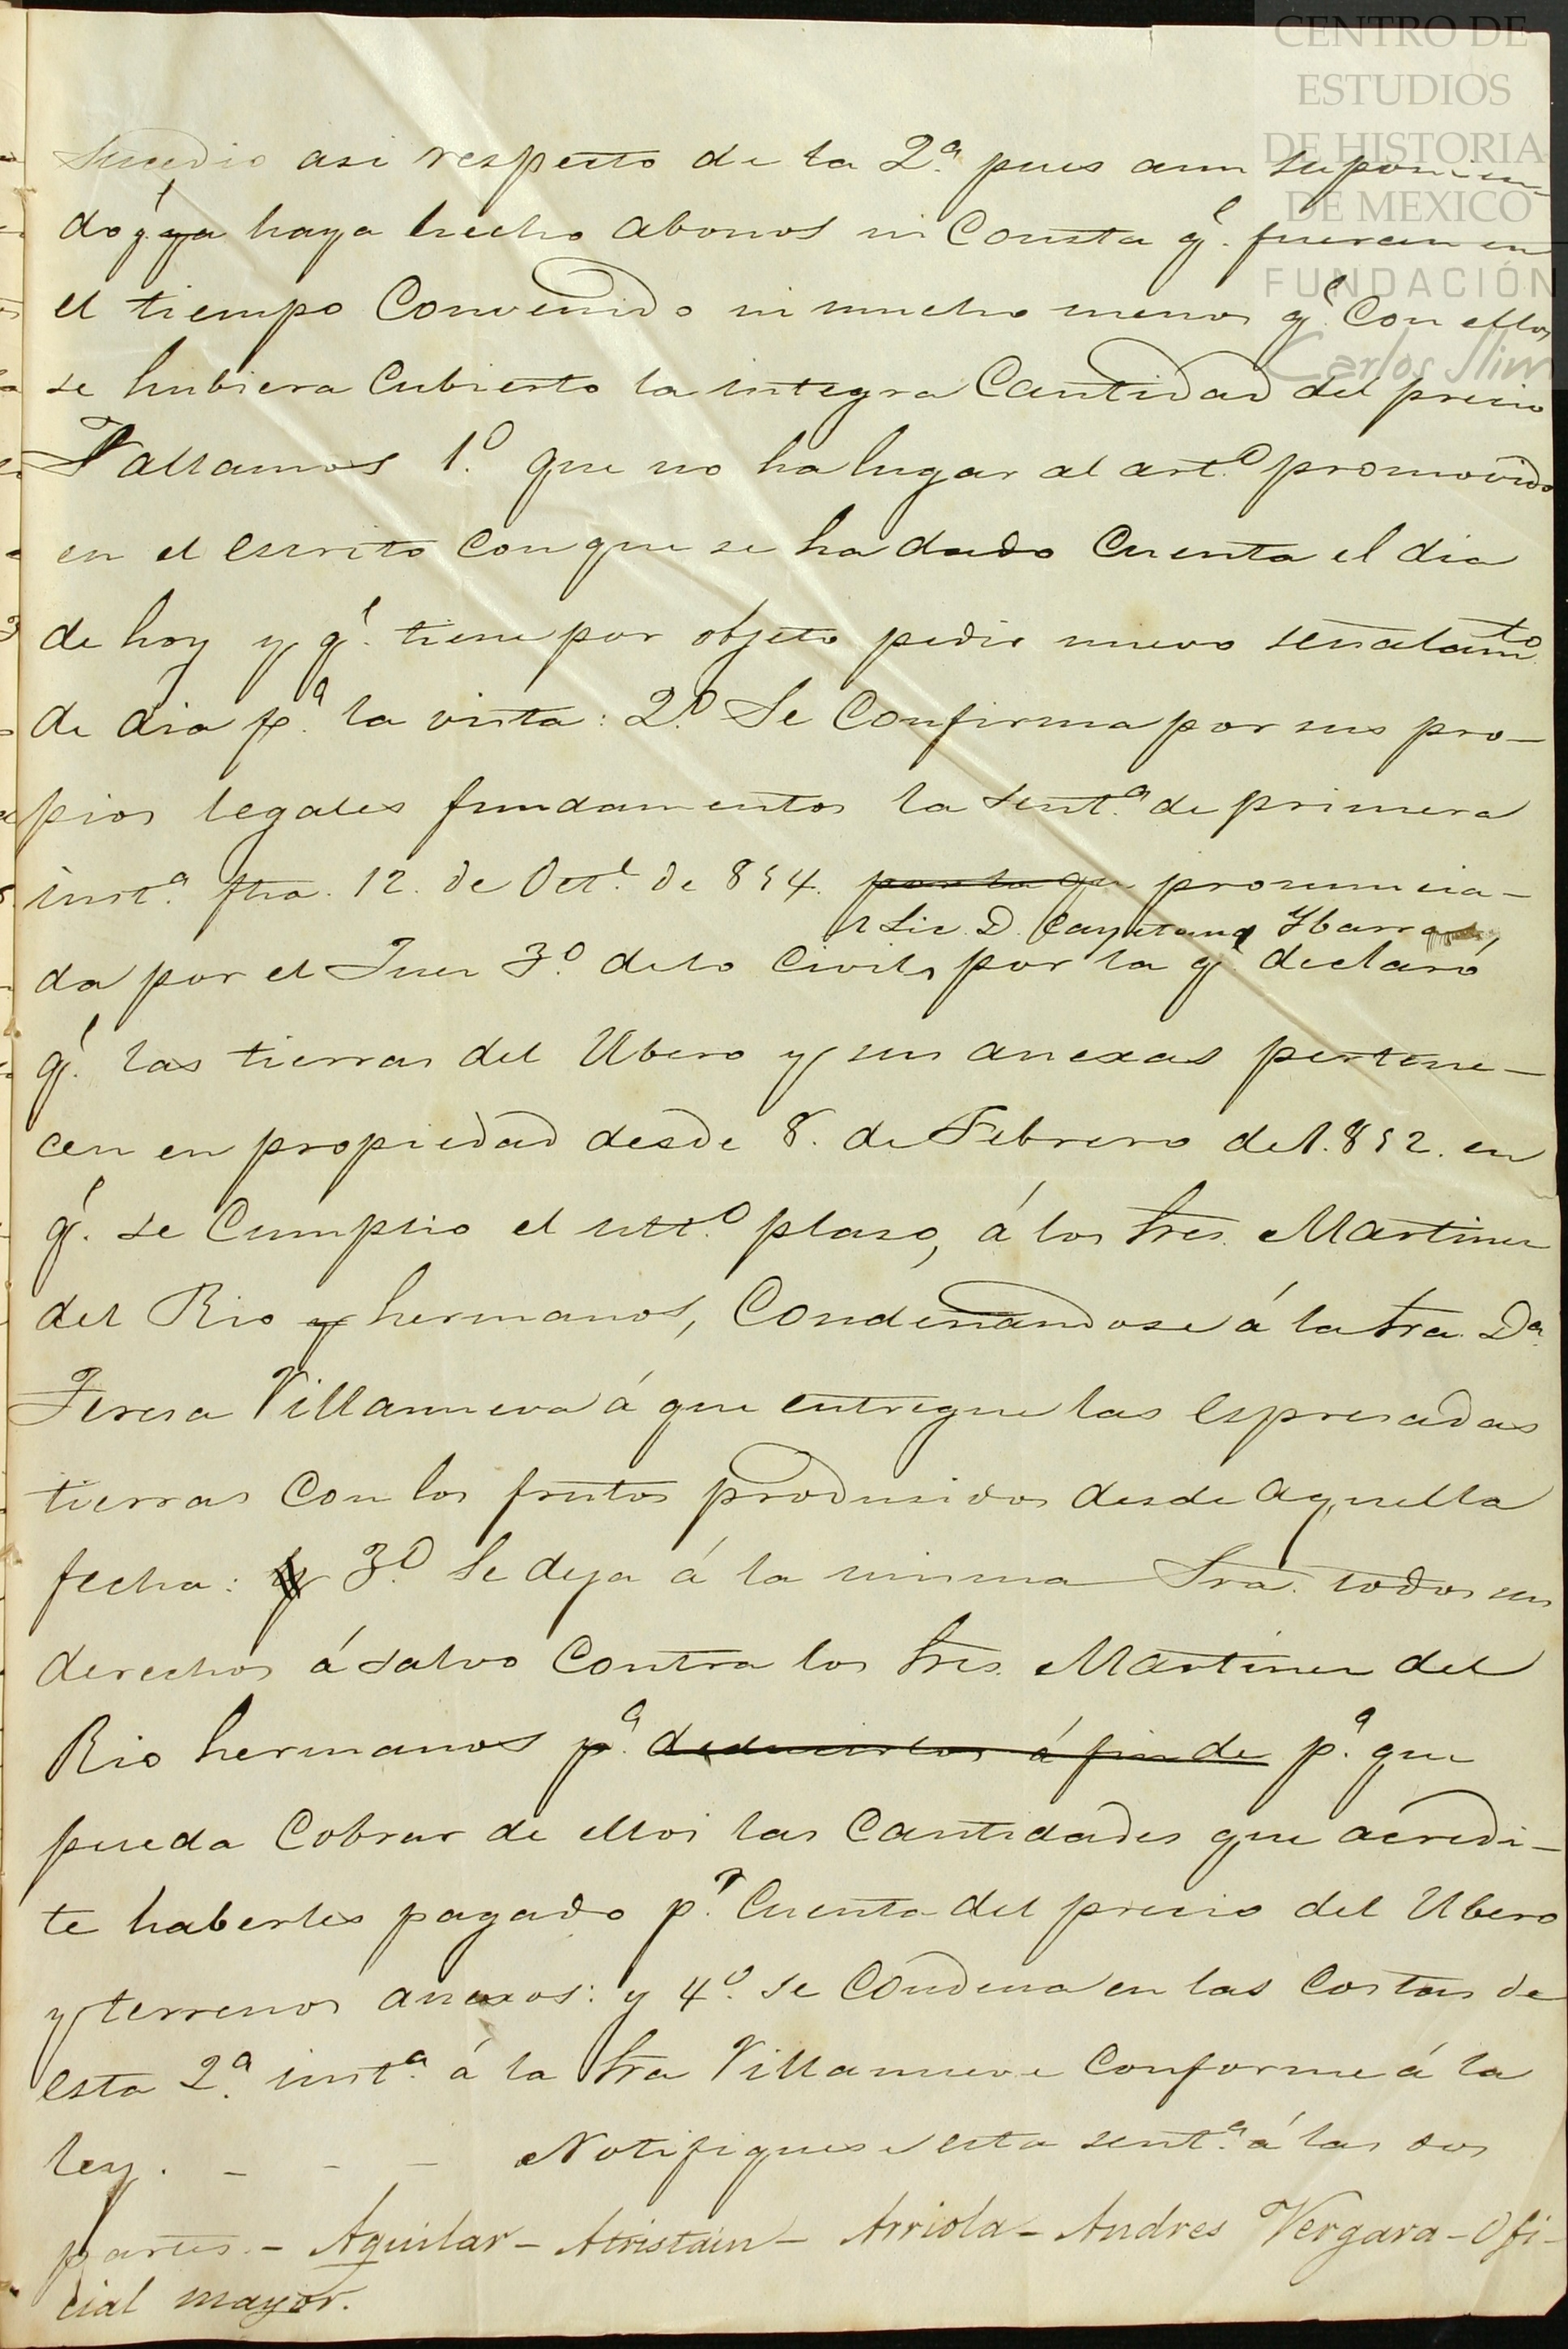 CENTRO DE
ESTUDIOS
DE HISTORIA
DE MEXICO
FUNDACIÓN
Carlos Slim
Sucedio asi respecto de la 2ª pues aun suponien-
do q.e ya haya hecho abonos ni Consta q.e fueran en
el tiempo Convenido ni mucho menos q.e Con ellos
se hubiera Cubierto la integra Cantidad del precio
Fallamos 1.º que no ha lugar al art.º promovido
en el escrito con que se ha dado Cuenta el dia
de hoy y q.e tiene por objeto pedir nuevo señalam.to
de dia p.ª la vista: 2.º Se Confirma por sus pro-
pios legales fundamentos la sent.ª de primera
inst.ª fha. 12. de Oct.e de 854. por la que pronuncia-
Lic. D. Cayetano Ybarra,
da por el Juez 3.º de lo Civil, por la q.e declaró
q.e las tierras del Ubero y sus anexas pertene-
cen en propiedad desde 8. de Febrero de 1.852. en
q.e se Cumplio el ult.º plaso, á los Sres. Martinez
del Rio y hermanos, Condenandose á la Sra. Dª
Teresa Villanueva á que entregue las espresadas
tierras Con los frutos produsidos desde aquella
fecha: y 3.º Se deja á la misma Sra. todos sus
derechos á salvo Contra los Sres. Martinez del
Rio hermanos p.ª deducirlos á fin de p.ª que
pueda Cobrar de ellos las Cantidades que acredi-
te haberles pagado p.r Cuenta del precio del Ubero
y terrenos anexos: y 4.º se Condena en las Costas de
esta 2.ª inst.ª á la Sra Villanueva Conforme á la
ley. - - - Notifiquese esta sent.ª á las dos
partes. - Aguilar - Atristain - Arriola - Andres Vergara - Ofi-
cial mayor.